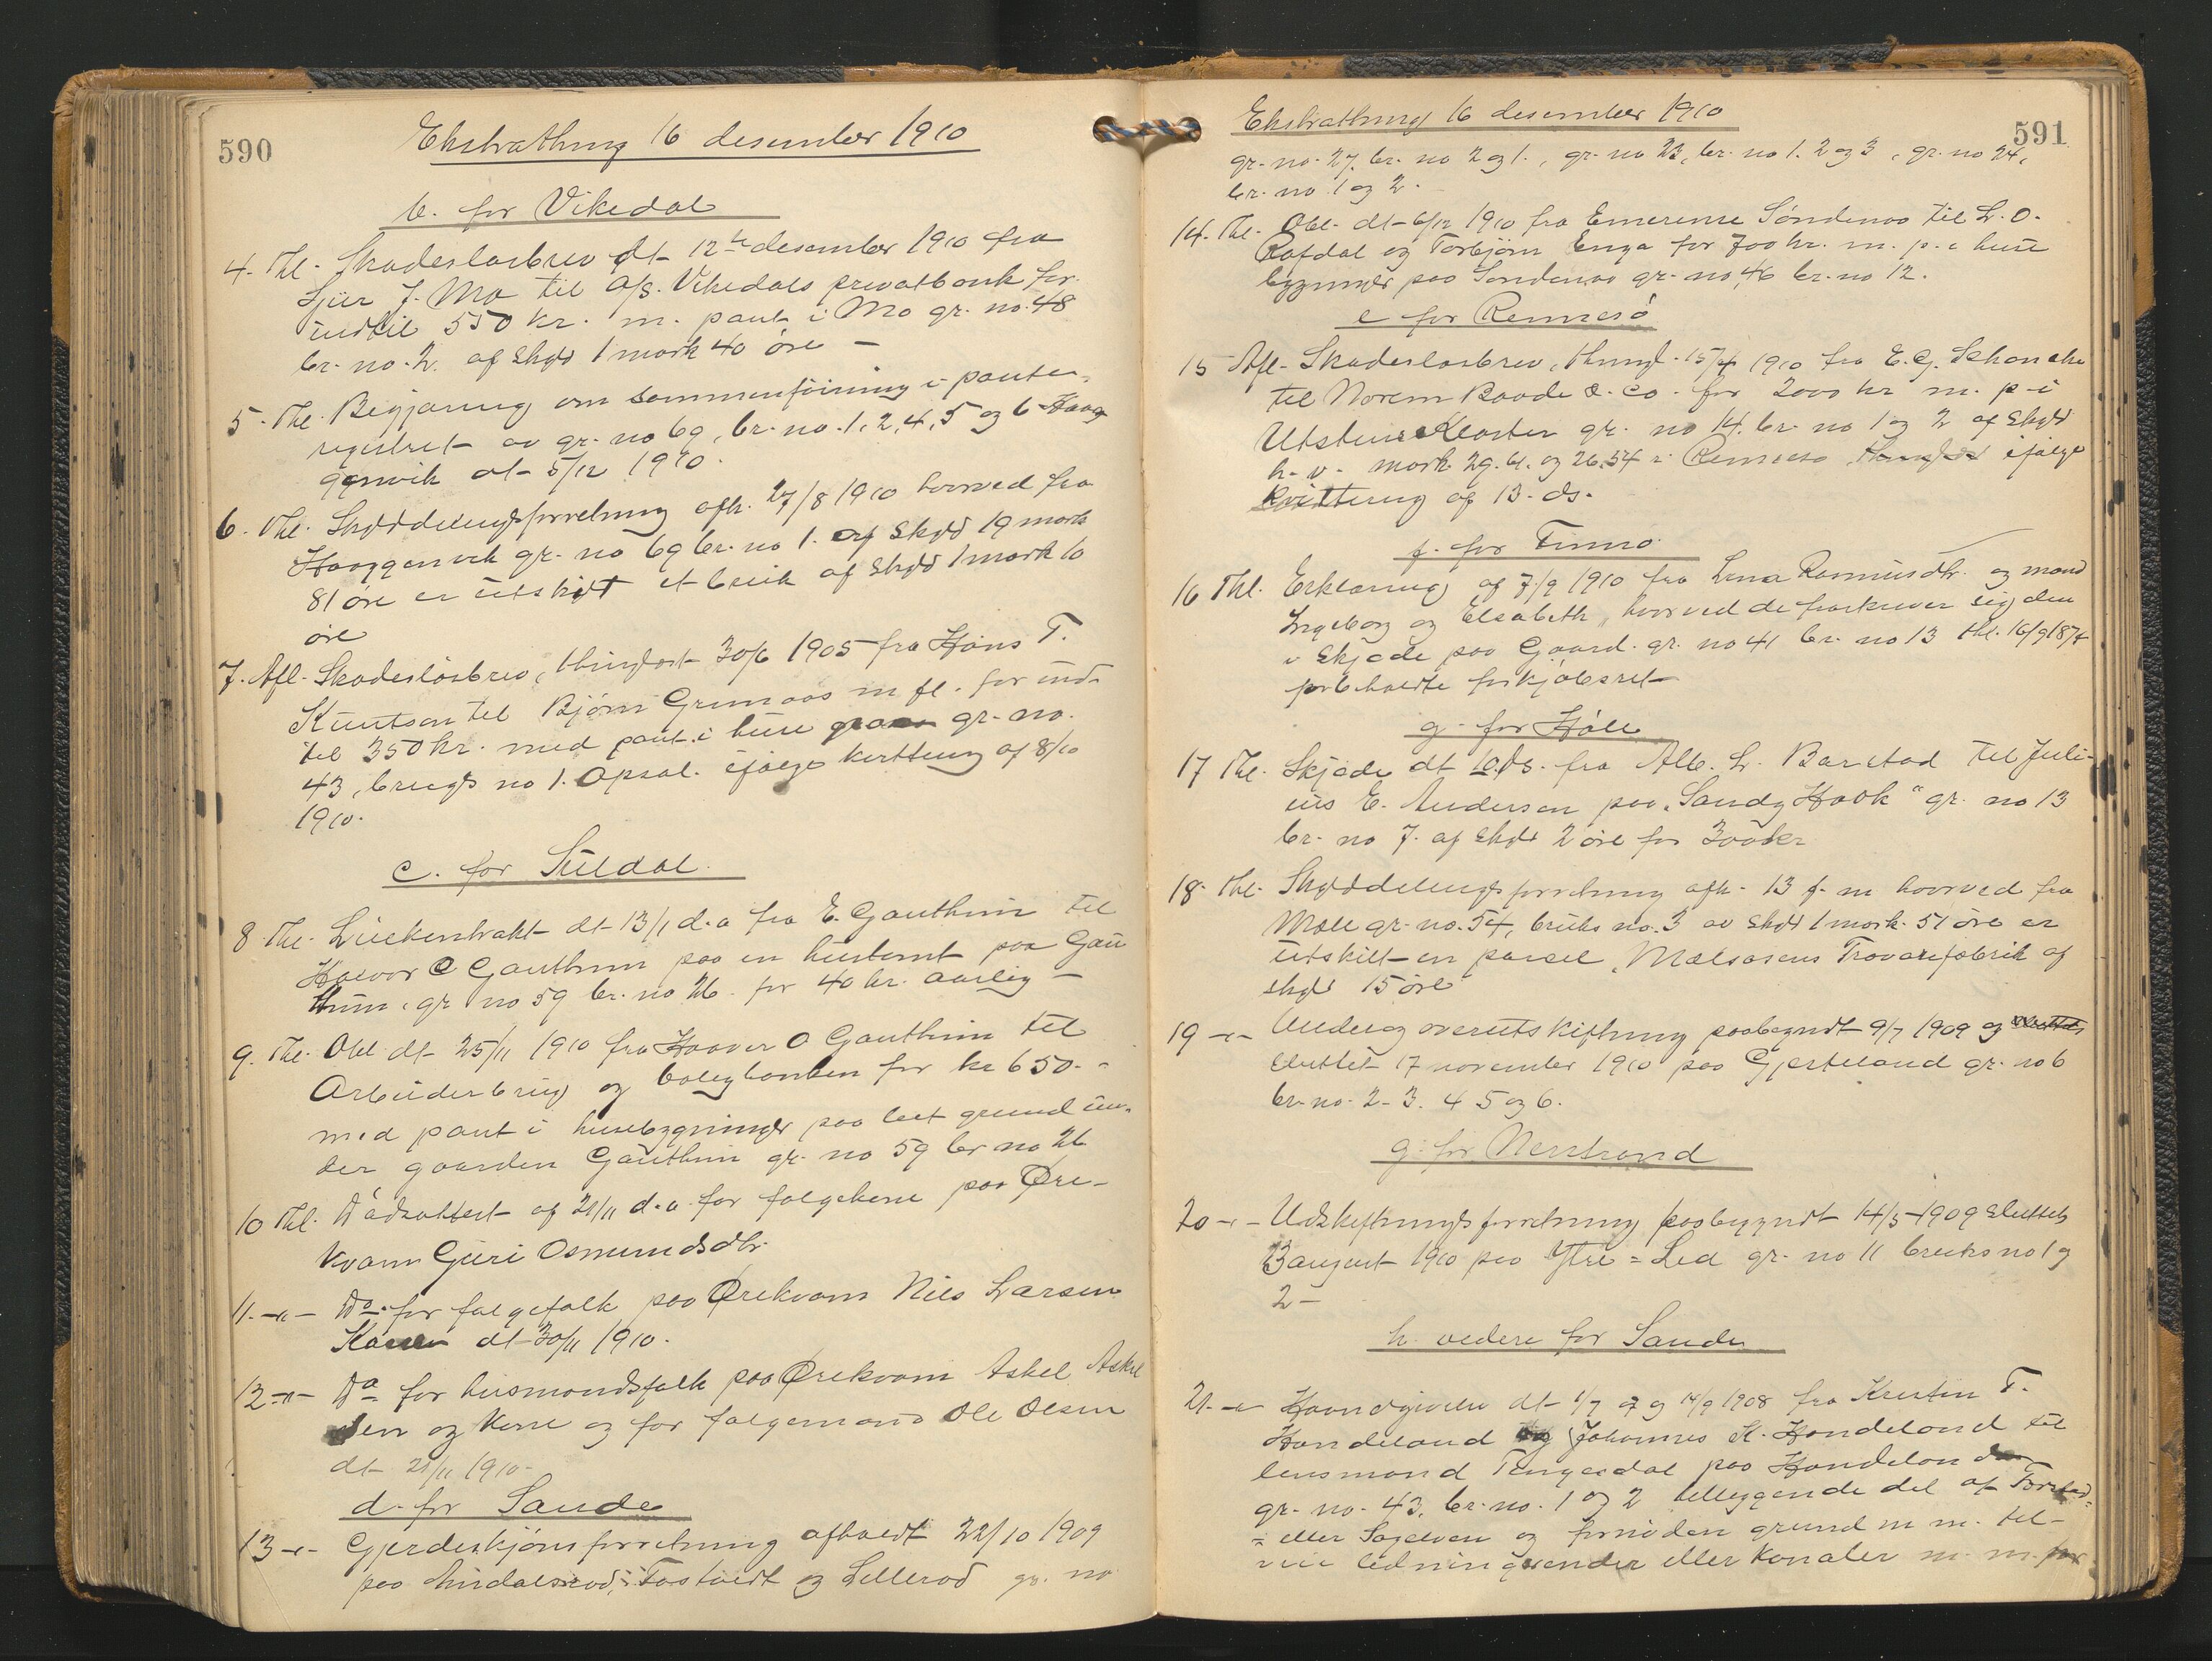 590
Ekstrathing 16 desember 1910
b. for Vikedal
4. Thl. Skadesløsbrev dt 12te desember 1910 fra
J. Mo til A/S. Vikedals privatbank for
indtil 550 kr. m. pant i Mo gr. no. 48
br. no. 2. af skyld 1 mark 40 øre –
5. Thl. Begjæring om sammenføining i pante-
registret av gr. no 69, br. no. 1, 2, 4, 5 og 6 Haag
genvik dt 5/12 1910.
6. Thl. Skylddelingsforretning afh. 27/8 1910 hvorved fra
Haaggenvik gr. no 69 br. no 1. af skyld 19 mark
81 øre er utskilt et bruk af skyld 1 mark 10
øre
7. Afl. Skadesløsbrev, thinglæst 30/6 1905 fra Hans T.
Knutsen til Bjørn Grimaas m fl. for ind-
til 350 kr. med pant i huse gr. no.
43, brugs no 1. Opsal. ifølge kvittering af 8/10
1910.
c. for Suldal.
8. Thl. Lukontrakt dt 13/1 d.a fra E. Gauthun til
Halvor O Gauthun paa en hustomt paa Gau
thun, gr no 59 br. no 26 for 40 kr. aarlig –
9. Thl. Obl. dt 25/11 1910 fra Haavor O Gauthun til
Arbeiderbrug og boligbanken for kr 650.-
med pant i husebygninger paa leet grund un-
der gaarden Gauthun gr. no 59 br no 26
10 Thl. Dødsattest af 21/11 d.a. for følgekone paa Øre-
kvam Guri Osmundsdtr.
11. –"– Do. for følgefolk paa Ørekvam Nils Larsen
Kari dt 30/11 1910.
12 –"– Do for husmandsfolk paa Ørekvam Askel Askel
sen og kone og for følgemand Ole Olsen
dt 21/11 1910.
d. for Sande
13 –"– Gjerdeskjønsforretning afholdt 22/10 1909
paa Tastveit og Lillerød gr. no
591
Ekstrathing 16 desember 1910
gr. no. 27, br. no 2 og 1., gr. no 23, br. no 1. 2 og 3, gr. no 24,
br. no 1 og 2.
14. Thl. Obl. dt 6/12 1910 fra Emerense Søndenaa til L. O.
Rafdal og Torbjørn Enga for 700 kr. m. p. i huse
bygninger paa Søndenaa gr. no 46 br. no 12.
e for Rennesø
15 Afl. Skadesløsbrev, thingl. 15/4 1910 fra E. G. Schanche
til Norem Baade & Co. for 2000 kr m. p. i
Utstein Kloster gr. no 14. br. no 1 og 2 af skyld
h.v. mark 29.61. og 26.54 i Rennesø ifølge
kvittering af 13. ds.
f. for Finnø
16 Thl. Erklæring af 7/9 1910 fra Lina Rasmusdtr. og mand
Ingeborg og Elsabeth, hvorved de fraskriver sig den
i skjøde paa Gaard. gr. no 41 br. no 13 thl. 16/9 1874
forbeholdte forkjøbsret
g. for Høle
17 Thl. Skjøde dt 10. ds. fra Alb. L. Barstad til Juli-
us E. Andersen paa "Sandy Hook" gr. no 13
br. no 7. af skyld 2 øre for 300 kr
18. Thl. Skylddelingsforretning afh. 13 f. m hvorved fra
Mæle gr. no. 54, bruks no. 3 av skyld 1 mark 51 øre er
utskilt en parsel "Mælsosens Trævarefabrik af
skyld 15 øre
19 –"– Under og overutskiftning paabegyndt 9/7 1909 og
sluttet 17 november 1910 paa Gjerteland gr. no 6
br. no. 2-3. 4 5 og 6.
g. for Nerstrand
20 –"– Utskiftningsforretning paabegyndt 14/5 1909 sluttet
13 august 1910 paa Ytre=Lid gr. no 11 bruks no 1 og
2 –
h. videre for Sande
21. –"– Haandgivelse dt 1/7 og 14/9 1908 fra Kristen T.
Handeland og Johannes K. Handeland til
lensmand Tengesdal paa Handeland
gr. no. 43, br. no. 1 og 2 tilliggende del af
= eller Sagelven og fornøden grund m m. til-
ledninger eller kanaler m. m. for